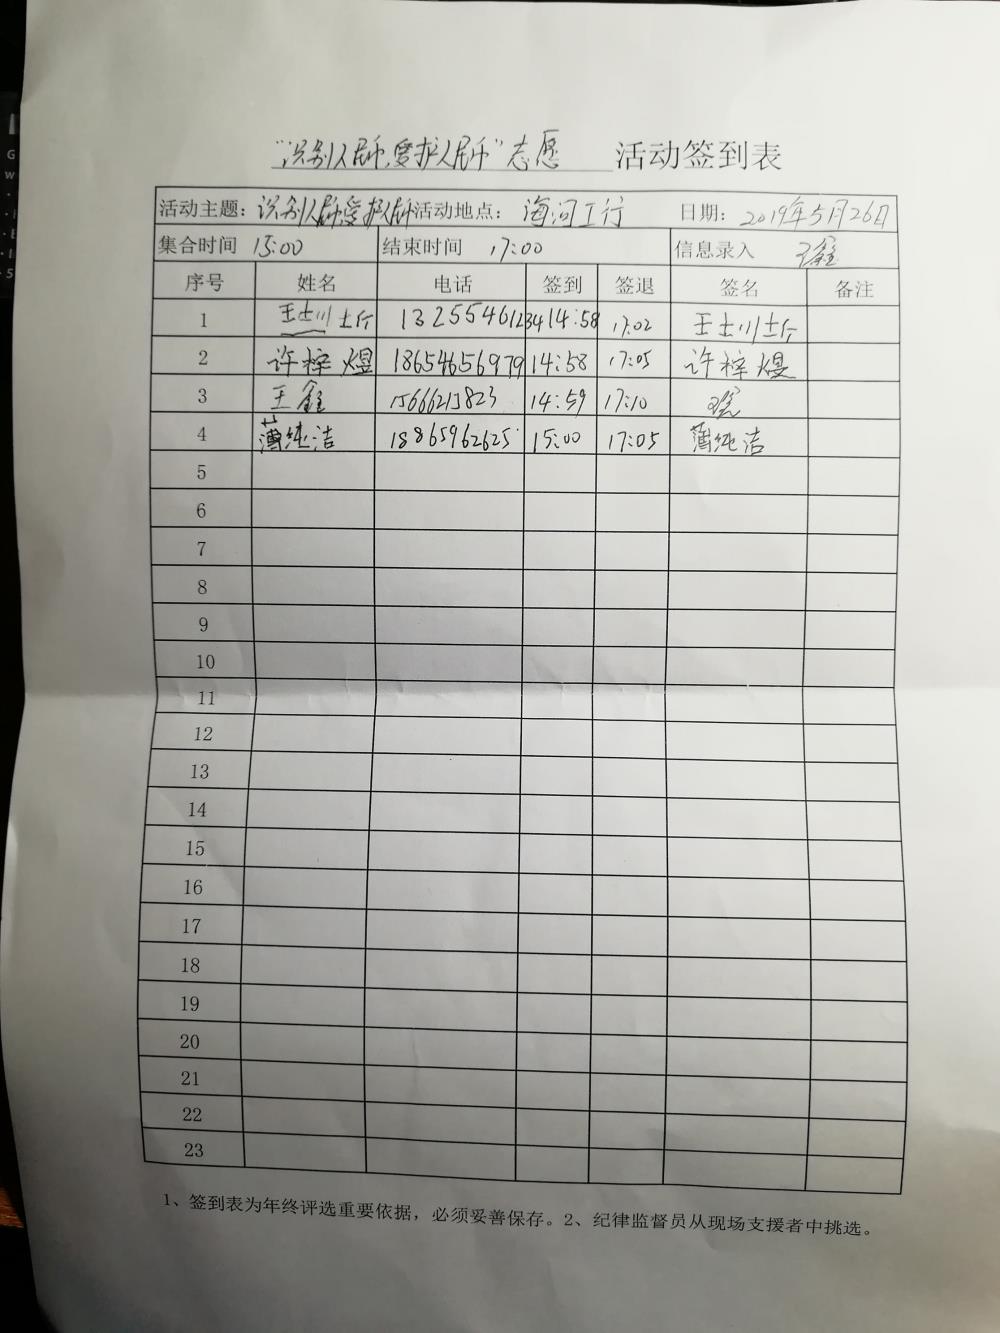 “识别人民币,爱护人民币”志愿 活动签到表
活动主题: 识别人民币,爱护人民币 活动地点: 海河工行 日期: 2019年5月26日
集合时间 15:00 结束时间 17:00 信息录入 王鑫
序号 姓名 电话 签到 签退 签名 备注
1 13255461234 14:58 17:02
2 许梓煜 18654656979 14:58 17:05 许梓煜
3 王鑫 15666213823 14:59 17:10
4 薄纯洁 18865962625 15:00 17:05 薄纯洁
5
6
7
8
9
10
11
12
13
14
15
16
17
18
19
20
21
22
23
1、签到表为年终评选重要依据，必须妥善保存。2、纪律监督员从现场支援者中挑选。